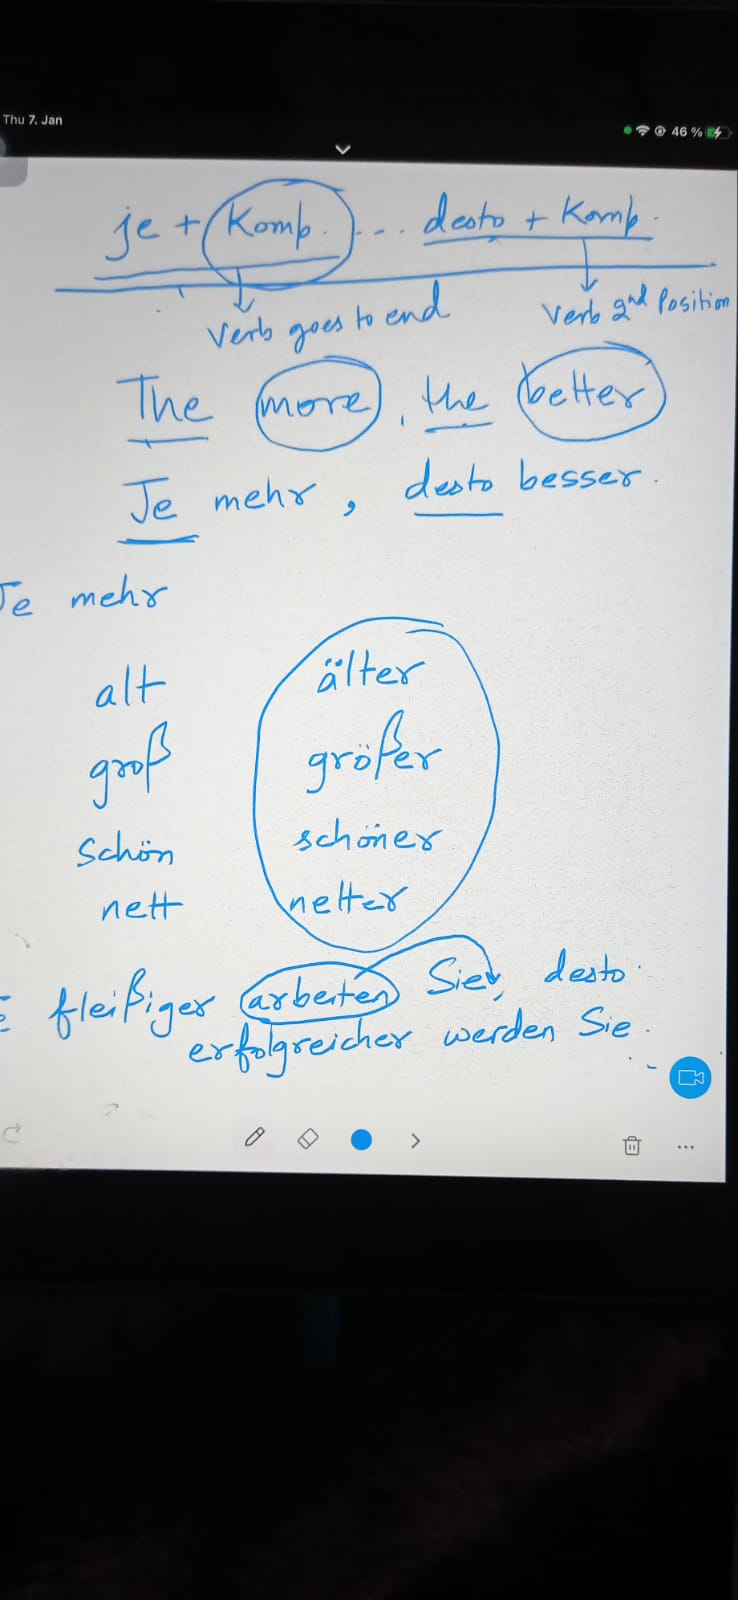 Thu 7. Jan
46 %
je + Komp. ... desto + Komp.
Verb goes to end
Verb 2nd Position
The more, the better
Je mehr, desto besser.
Je mehr
alt älter
groß größer
schön schöner
nett netter
fleißiger arbeiten Sie, desto
erfolgreicher werden Sie.